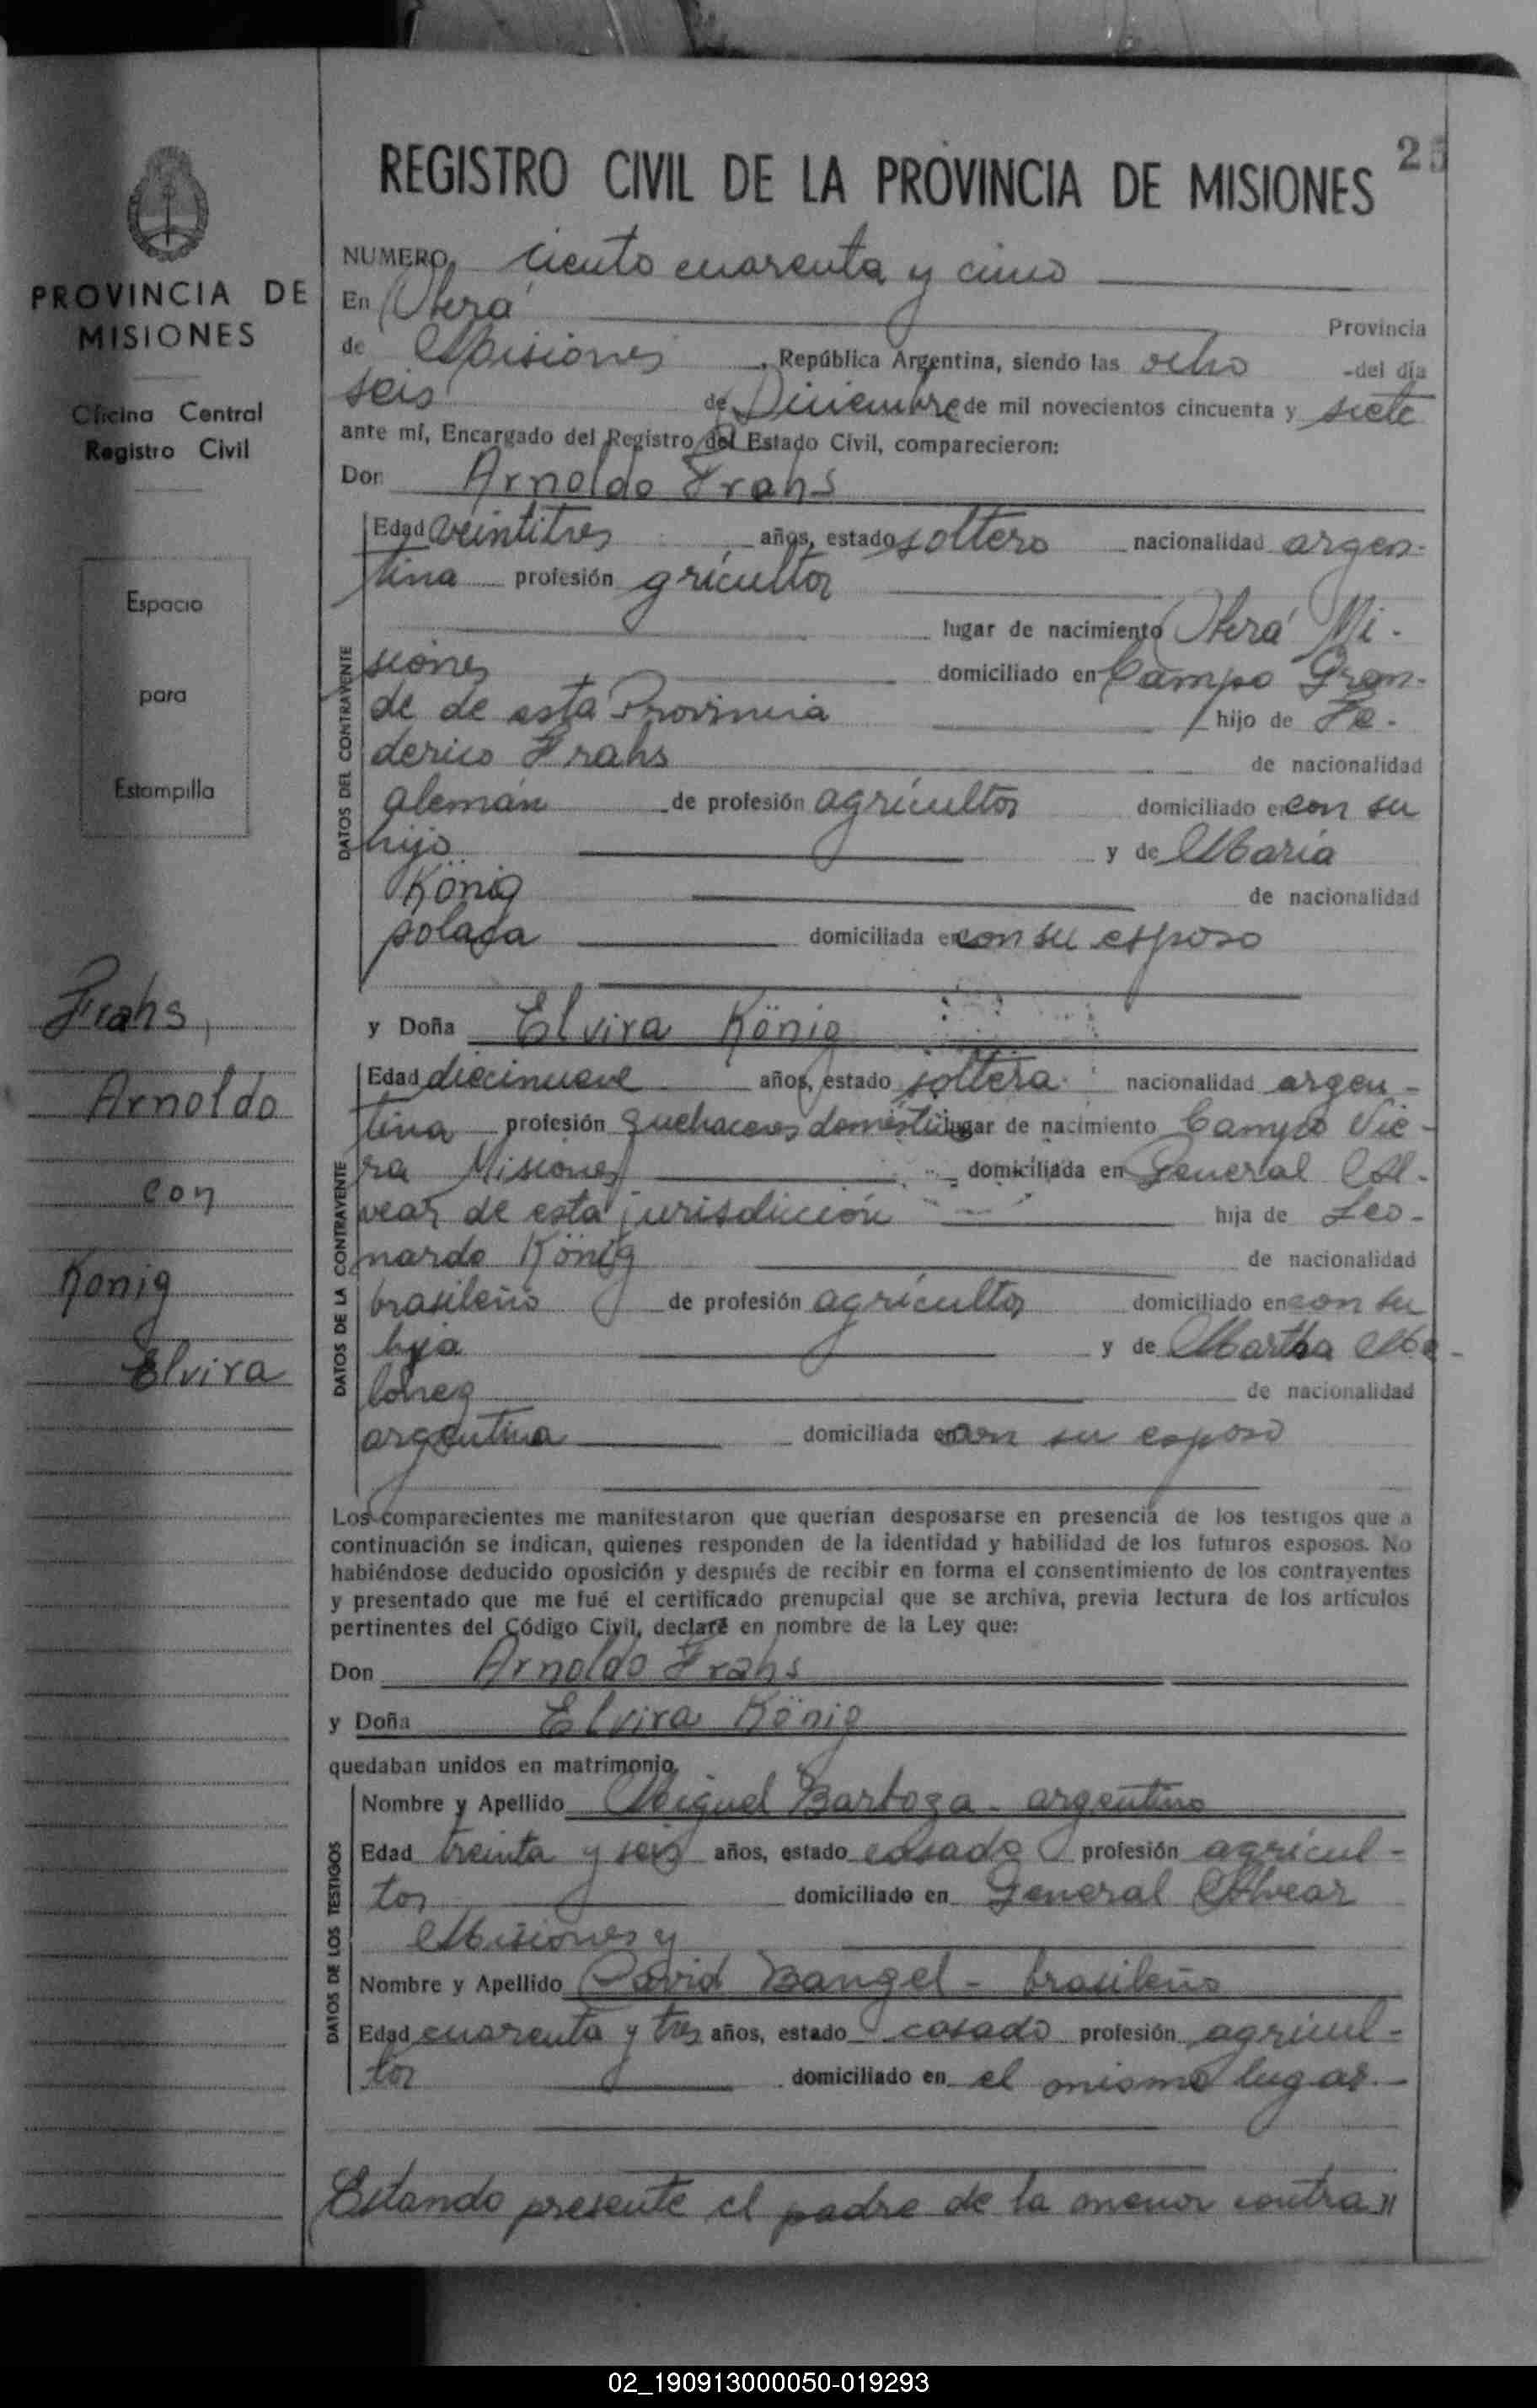 REGISTRO CIVIL DE LA PROVINCIA DE MISIONES
25
PROVINCIA DE
MISIONES
Oficina Central
Registro Civil
Espacio
para
Estampilla
Frahs,
Arnoldo
con
König
Elvira
NUMERO ciento cuarenta y cinco
En Oberá Provincia
de Misiones, República Argentina, siendo las ocho del día
seis de Diciembre de mil novecientos cincuenta y siete
ante mí, Encargado del Registro del Estado Civil, comparecieron:
Don Arnoldo Frahs
DATOS DEL CONTRAYENTE
Edad veintitres años, estado soltero nacionalidad argen-
tina profesión gricultor
lugar de nacimiento Oberá Mi-
siones domiciliado en Campo Gran-
de de esta Provincia hijo de Fe-
derico Frahs de nacionalidad
alemán de profesión agricultor domiciliado en con su
hijo y de María
König de nacionalidad
polaca domiciliada en con su esposo
y Doña Elvira König
DATOS DE LA CONTRAYENTE
Edad diecinueve años, estado soltera nacionalidad argen-
tina profesión quehaceres domésticos lugar de nacimiento Campo Vie-
ra Misiones domiciliada en General Al-
vear de esta jurisdicción hija de Leo-
nardo König de nacionalidad
brasileño de profesión agricultor domiciliado en con su
hija y de Martha
de nacionalidad
argentina domiciliada en con su esposo
Los comparecientes me manifestaron que querían desposarse en presencia de los testigos que a
continuación se indican, quienes responden de la identidad y habilidad de los futuros esposos. No
habiéndose deducido oposición y después de recibir en forma el consentimiento de los contrayentes
y presentado que me fué el certificado prenupcial que se archiva, previa lectura de los artículos
pertinentes del Código Civil, declaré en nombre de la Ley que:
Don Arnoldo Frahs
y Doña Elvira König
quedaban unidos en matrimonio.
DATOS DE LOS TESTIGOS
Nombre y Apellido Miguel Barboza - argentino
Edad treinta y seis años, estado casado profesión agricul-
tor domiciliado en General Alvear
Misiones y
Nombre y Apellido David Bangel - brasileño
Edad cuarenta y tres años, estado casado profesión agricul-
tor domiciliado en el mismo lugar.-
Estando presente el padre de la menor contra"
02_190913000050-019293